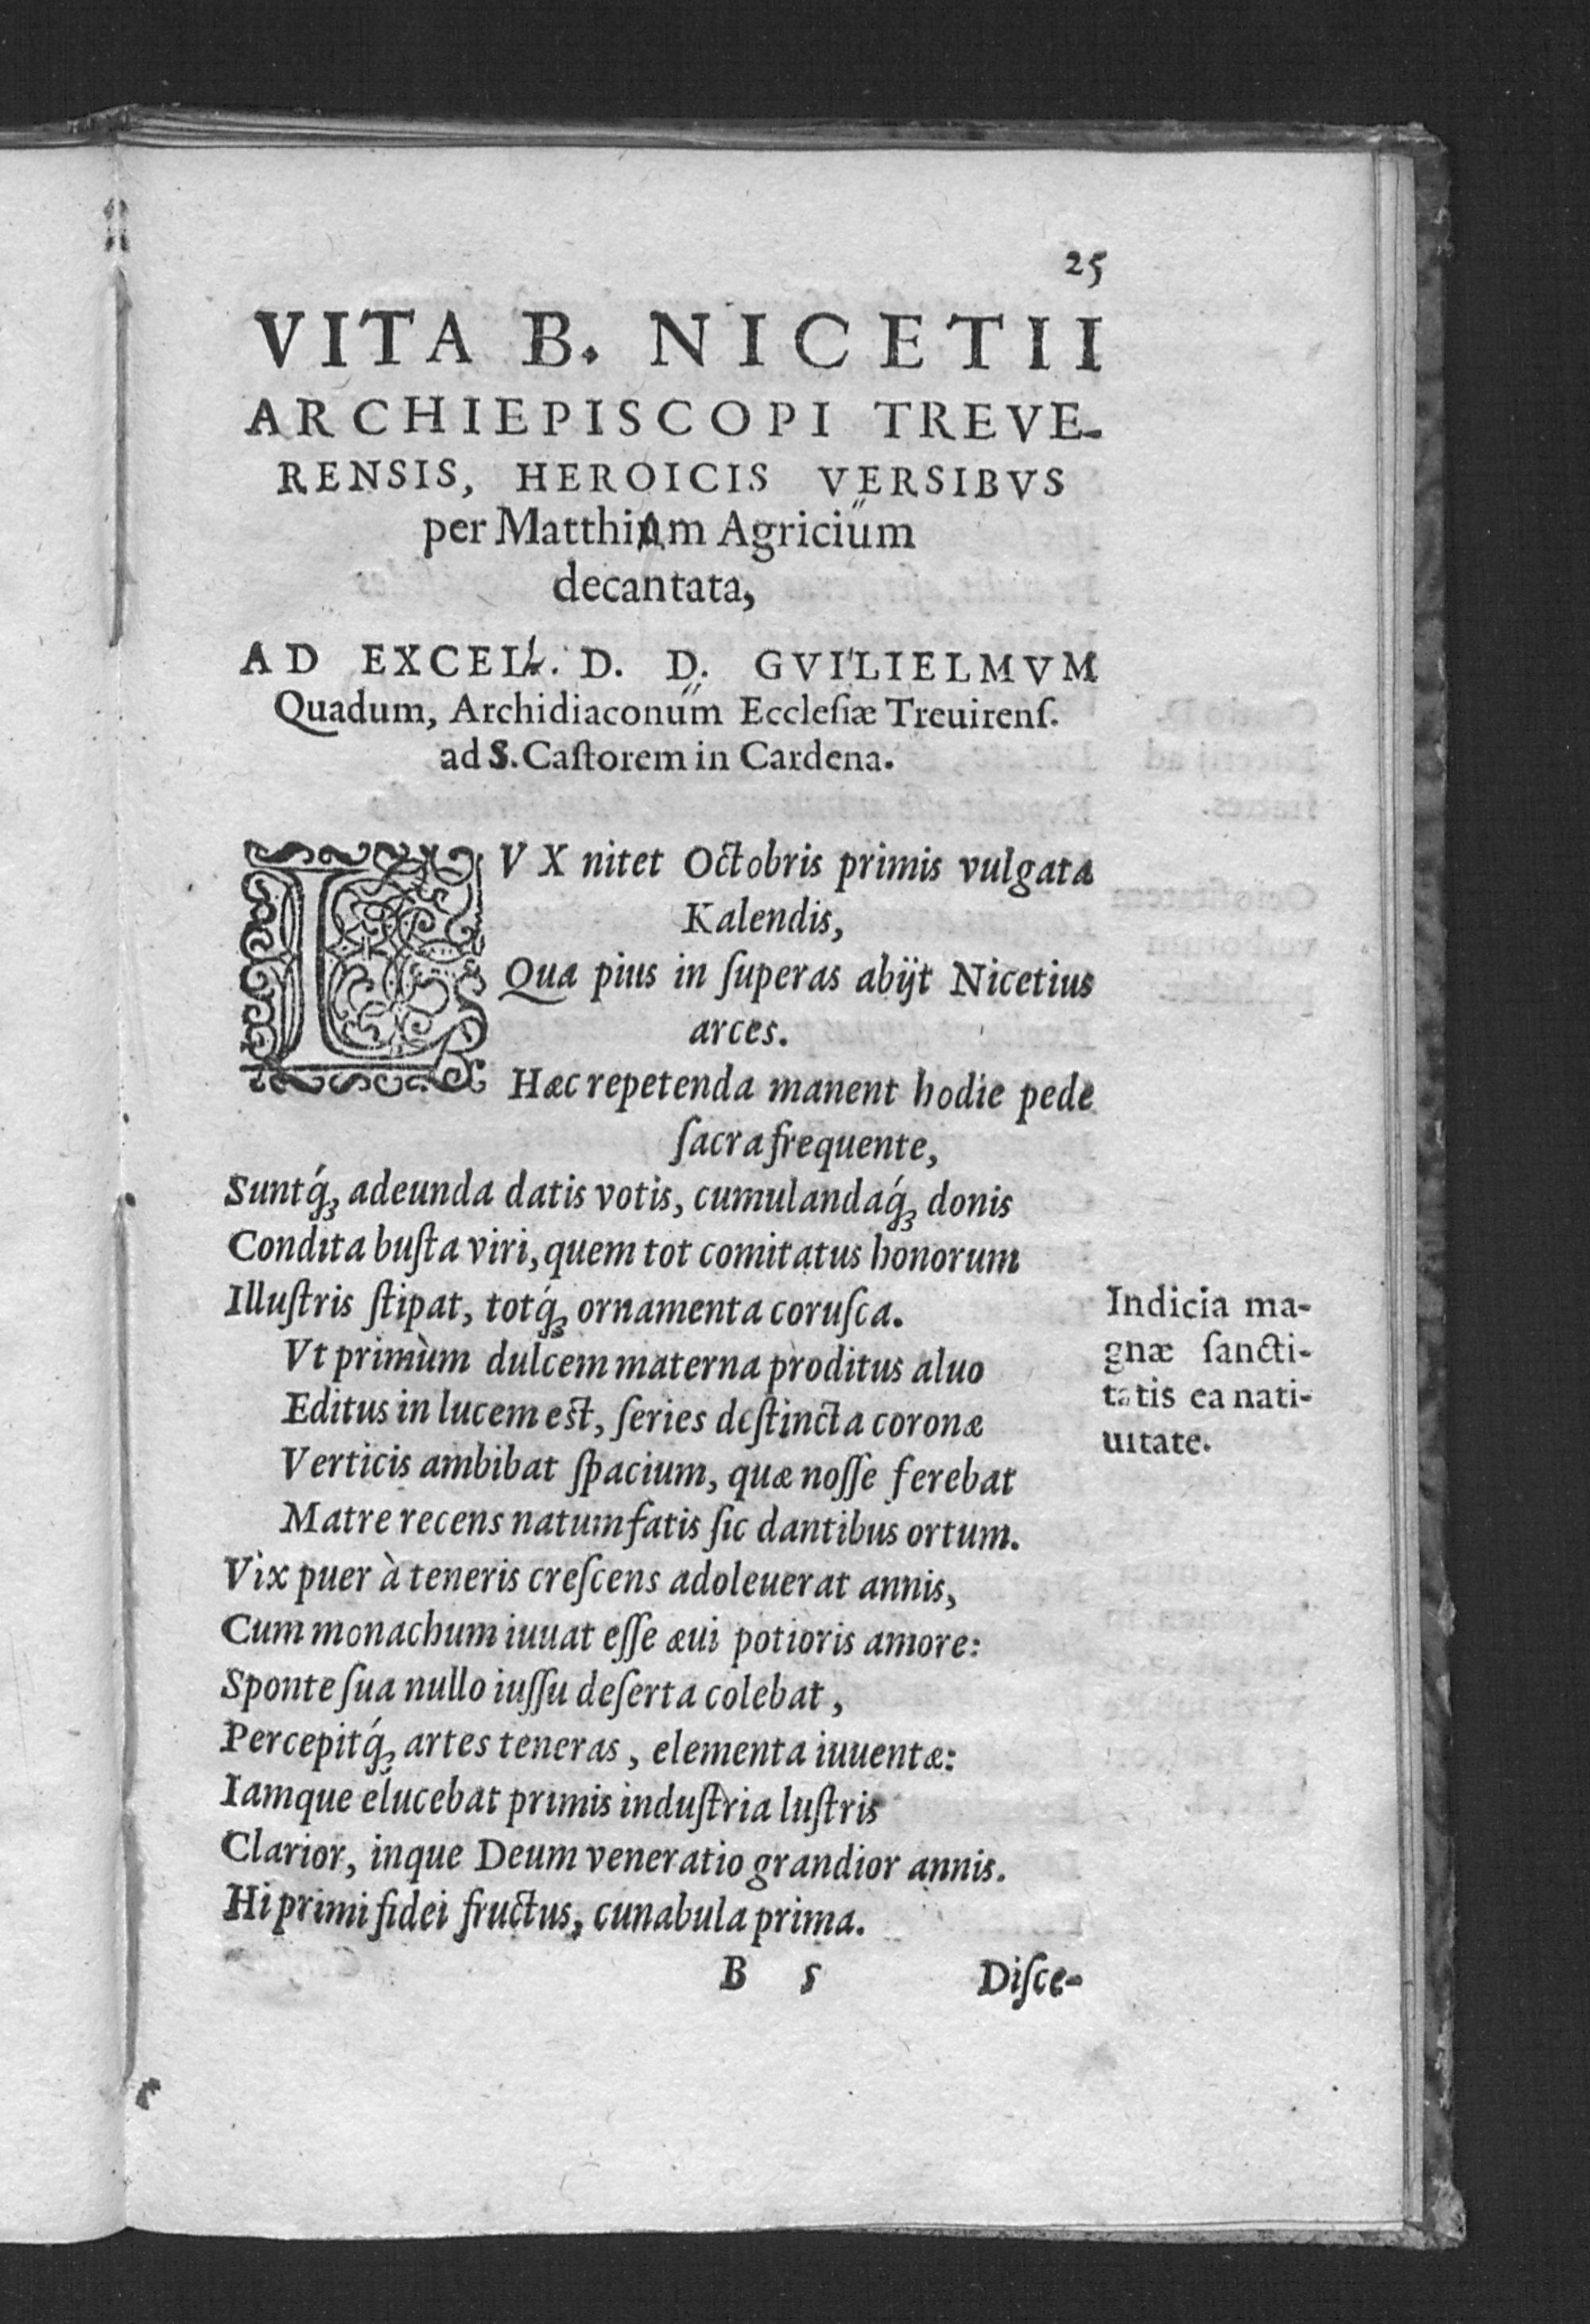 25
VITA B. NICETII
ARCHIEPISCOPI TREVE-
RENSIS, HEROICIS VERSIBVS
per Matthiam Agricium
decantata,
AD EXCELL. D. D. GVILIELMVM
Quadum, Archidiaconum Ecclesiæ Treuirens.
ad S. Castorem in Cardena.
LVX nitet Octobris primis vulgata
Kalendis,
Qua pius in ſuperas abijt Nicetius
arces.
Hæc repetenda manent hodie pede
ſacra frequente,
Suntq́; adeunda datis votis, cumulandaq́; donis
Condita buſta viri, quem tot comitatus honorum
Illuſtris ſtipat, totq́; ornamenta coruſca.
Vt primùm dulcem materna proditus aluo
Editus in lucem eſt, ſeries deſtincta coronæ
Verticis ambibat ſpacium, quæ noſſe ferebat
Matre recens natum fatis ſic dantibus ortum.
Vix puer à teneris creſcens adoleuerat annis,
Cum monachum iuuat eſſe æui potioris amore:
Sponte ſua nullo iuſſu deſerta colebat,
Percepitq́; artes teneras, elementa iuuentæ:
Iamque elucebat primis induſtria luſtris
Clarior, inque Deum veneratio grandior annis.
Hi primi fidei fructus, cunabula prima.
Indicia ma-
gnæ ſancti-
tatis ea nati-
uitate.
B 5 Diſce-